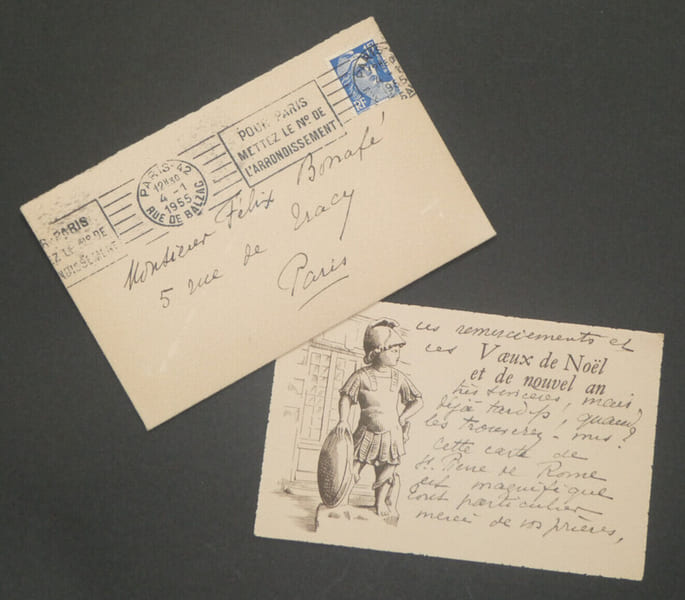 POUR PARIS
METTEZ LE No DE
L'ARRONDISSEMENT
PARIS·42
12H30
4-1
1955
RUE DE BALZAC
PARIS
Z LE No DE
NDISSEMENT
RF
Monsieur Félix Bonafé
5 rue de Tracy
Paris
ces remerciements et
ces Vœux de Noël
et de nouvel an
très sincères, mais
déjà tardifs, quand
les trouverez-vous?
cette carte de
St. Pierre de Rome
est magnifique
tout particulier
merci de vos prières,